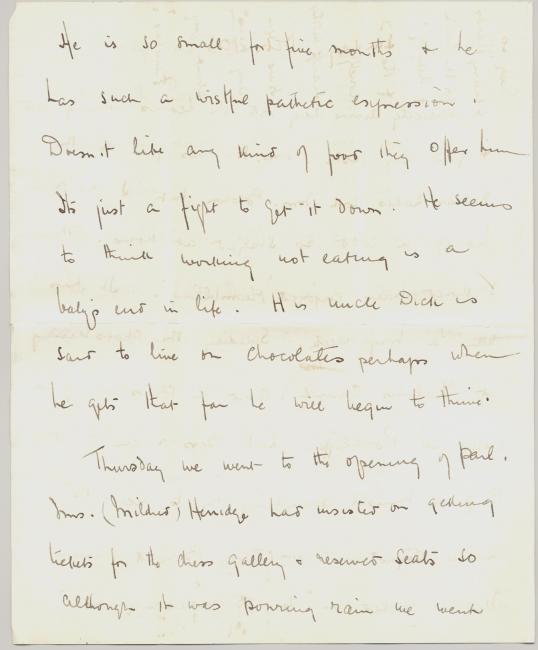 He is so small for five months & he
has such a wistful pathetic expression.
Doesn't like any kind of food they offer him
Its just a fight to get it down. He seems
to think working not eating is a
baby's end in life. His uncle Dick is
said to live on chocolates perhaps when
he gets that far he will begin to thrive.
Thursday we went to the opening of Parl.
Mrs. (Mildred) Herridge had insisted on getting
tickets for the dress gallery & reserved seats so
although it was pouring rain we went